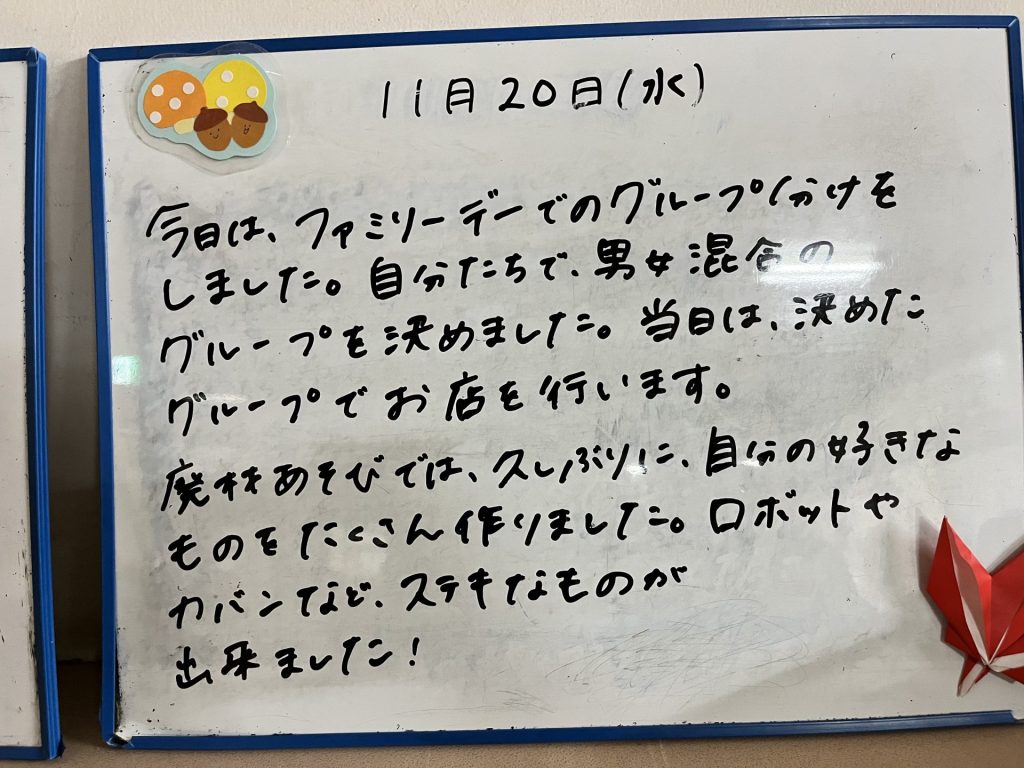 11月20日(水)
今日は、ファミリーデーでのグループ分けを
しました。自分たちで、男女混合の
グループを決めました。当日は、決めた
グループでお店を行います。
廃材あそびでは、久しぶりに、自分の好きな
ものをたくさん作りました。ロボットや
カバンなど、ステキなものが
出来ました!